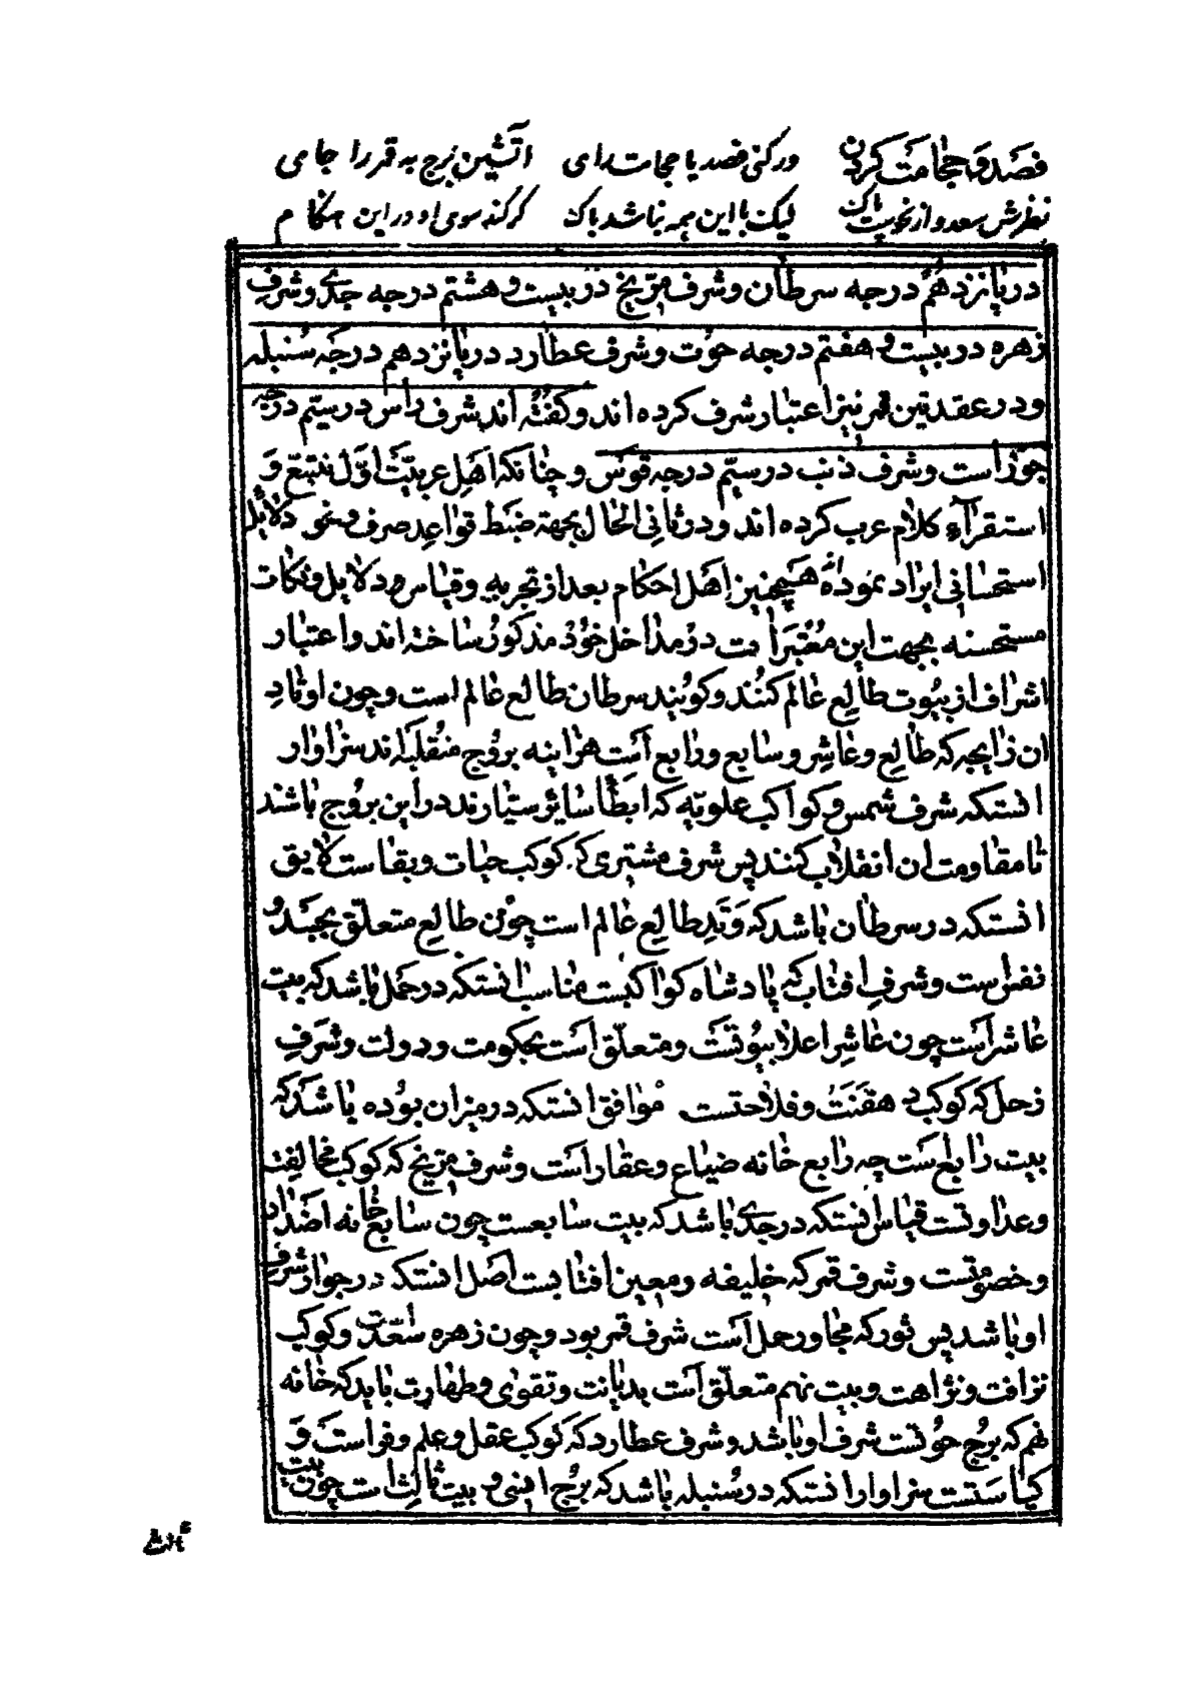 فصد و حجامت کردن ور کنی فصد یا حجامت رای آتشین برج به قمر را جای
نظرش سعد و از نحوست پاک لیک با این همه نباشد باک گر کند سوی او در این هنگام
در پانزدهم درجه سرطان و شرف مریخ در بیست و هشتم درجه جدی و شرف
زهره در بیست و هفتم درجه حوت و شرف عطارد در پانزدهم درجه سنبله
و در عقدتین قمر نیز اعتبار شرف کرده اند و گفته اند شرف راس در سیم درجه
جوزاست و شرف ذنب در سیم درجه قوس و چنانکه اهل عربیت اول تتبع و
استقرآء کلام عرب کرده اند و در ثانی الحال بجهة ضبط قواعد صرف و نحو دلایل
استحسانی ایراد نموده اند همچنین اهل احکام بعد از تجربه و قیاس دلایل و نکات
مستحسنه بجهت این معتبرات در مداخل خود مذکور ساخته اند و اعتبار
اشراف از بیوت طالع عالم کنند و گویند سرطان طالع عالم است و چون اوتاد
ان زایجه که طالع و عاشر و سابع و رابع است هراینه بروج منقلبه اند سزاوار
انستکه شرف شمس و کواکب علویه که ابطأ سایر سیارند در این بروج باشند
تا مقاومت ان انقلاب کنند پس شرف مشتری که کوکب حیات و بقاست لایق
انستکه در سرطان باشد که وتد طالع عالم است چون طالع متعلق بجسد و
نفس است و شرف افتاب که پادشاه کواکبست مناسب انستکه در حمل باشد که بیت
عاشر است چون عاشر اعلا بیوتست و متعلق است بحکومت و دولت و شرف
زحل که کوکب دهقنت و فلاحتست موافق انستکه در میزان بوده باشد که
بیت رابع است چه رابع خانه ضیاع و عقار است و شرف مریخ که کوکب مخالفت
و عداوتست قیاس انستکه در جدی باشد که بیت سابعست چون سابع خانه اضداد
و خصومتست و شرف قمر که خلیفه و معین افتابست اصل انستکه در جوار شرف
او باشد پس ثور که مجاور حمل است شرف قمر بود و چون زهره سعدست و کوکب
نزافت و نزاهت و بیت نهم متعلق است بدیانت و تقوی و طهارت باید که خانه
نهم که برج حوتست شرف او باشد و شرف عطارد که کوکب عقل و علم و فراست و
کیاستست سزاوار انستکه در سنبله باشد که برج انسی و بیت ثالث است چون بیت